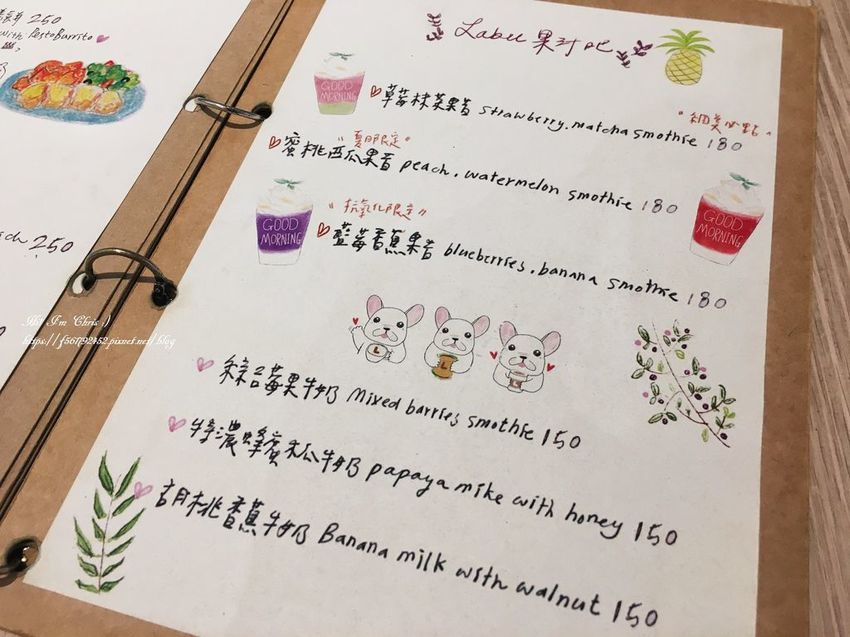 250
with PestoBurrito
Labu 果汁吧
GOOD MORNING
草莓抹茶果昔 strawberry.matcha smothie 180
"網美必點"
"夏日限定"
蜜桃西瓜果昔 peach.watermelon smothie 180
GOOD MORNING
"抗氧化限定"
藍莓香蕉果昔 blueberries.banana smothie 180
GOOD MORNING
250
Hi I'm Chris :)
L
L
綜合莓果牛奶 Mixed barries smothie 150
特濃蜂蜜木瓜牛奶 papaya mike with honey 150
胡桃香蕉牛奶 Banana milk with walnut 150